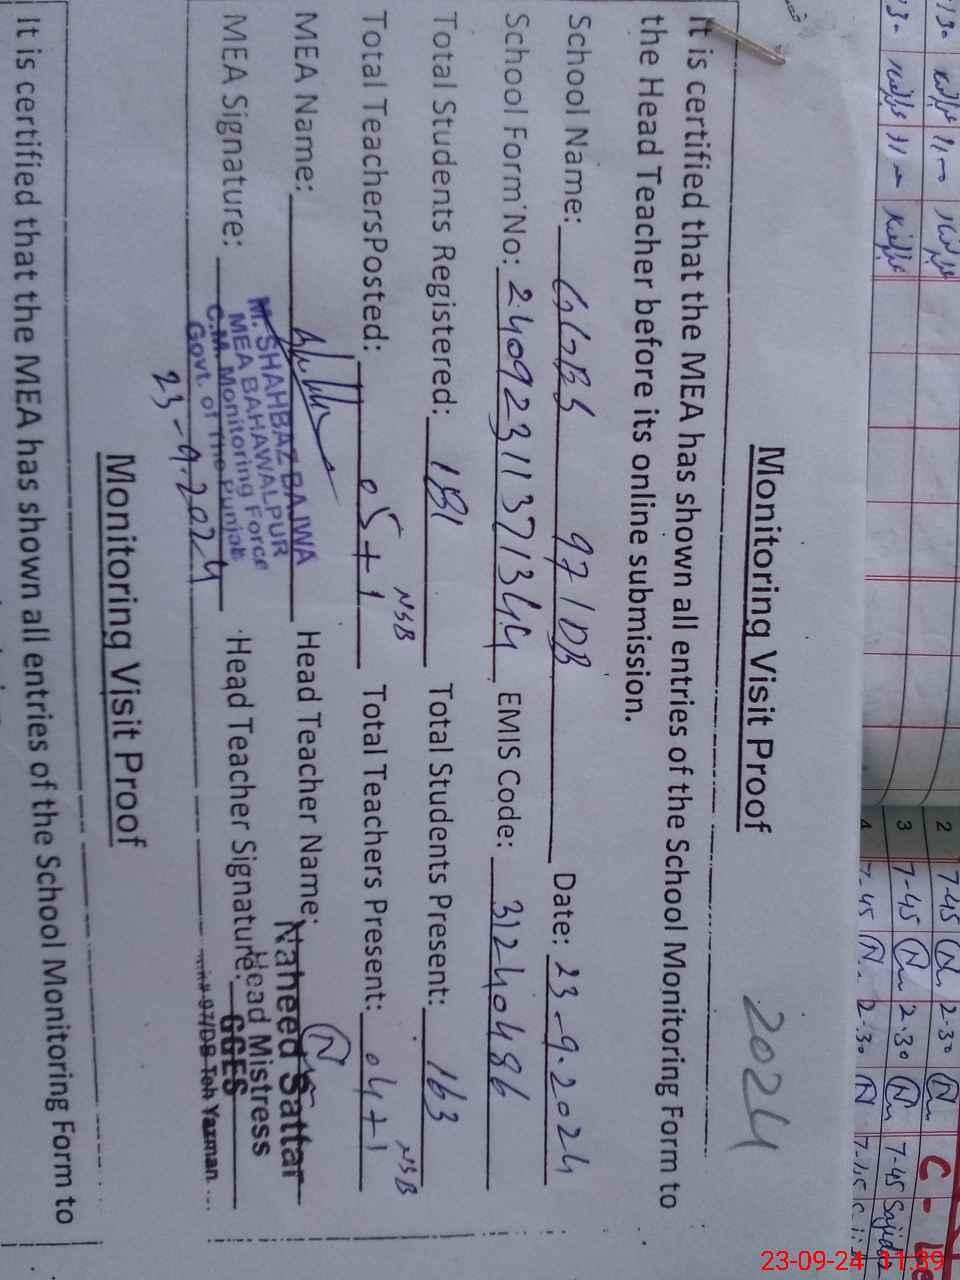 Monitoring Visit Proof
2024
It is certified that the MEA has shown all entries of the School Monitoring Form to
the Head Teacher before its online submission.
School Name: GGES 97/DB Date: 23-9.2024
School Form No: 2409231137134 EMIS Code: 31240486
Total Students Registered: 181 Total Students Present: 163
Total TeachersPosted: 05+1 NSB Total Teachers Present: 04+1 NSB
MEA Name: Head Teacher Name: Naheed Sattar
MEA Signature: Head Teacher Signature: Head Mistress
M. SHAHBAZ BAJWA
MEA BAHAWALPUR
C.M. Monitoring Force
Govt. of The Punjab
GGES
97/DB Teh Yazman
23-9.2024
Monitoring Visit Proof
It is certified that the MEA has shown all entries of the School Monitoring Form to
2 7-45 2-30
3 7-45 2-30 7-45
4 7-45 2-30
23-09-24 11:39